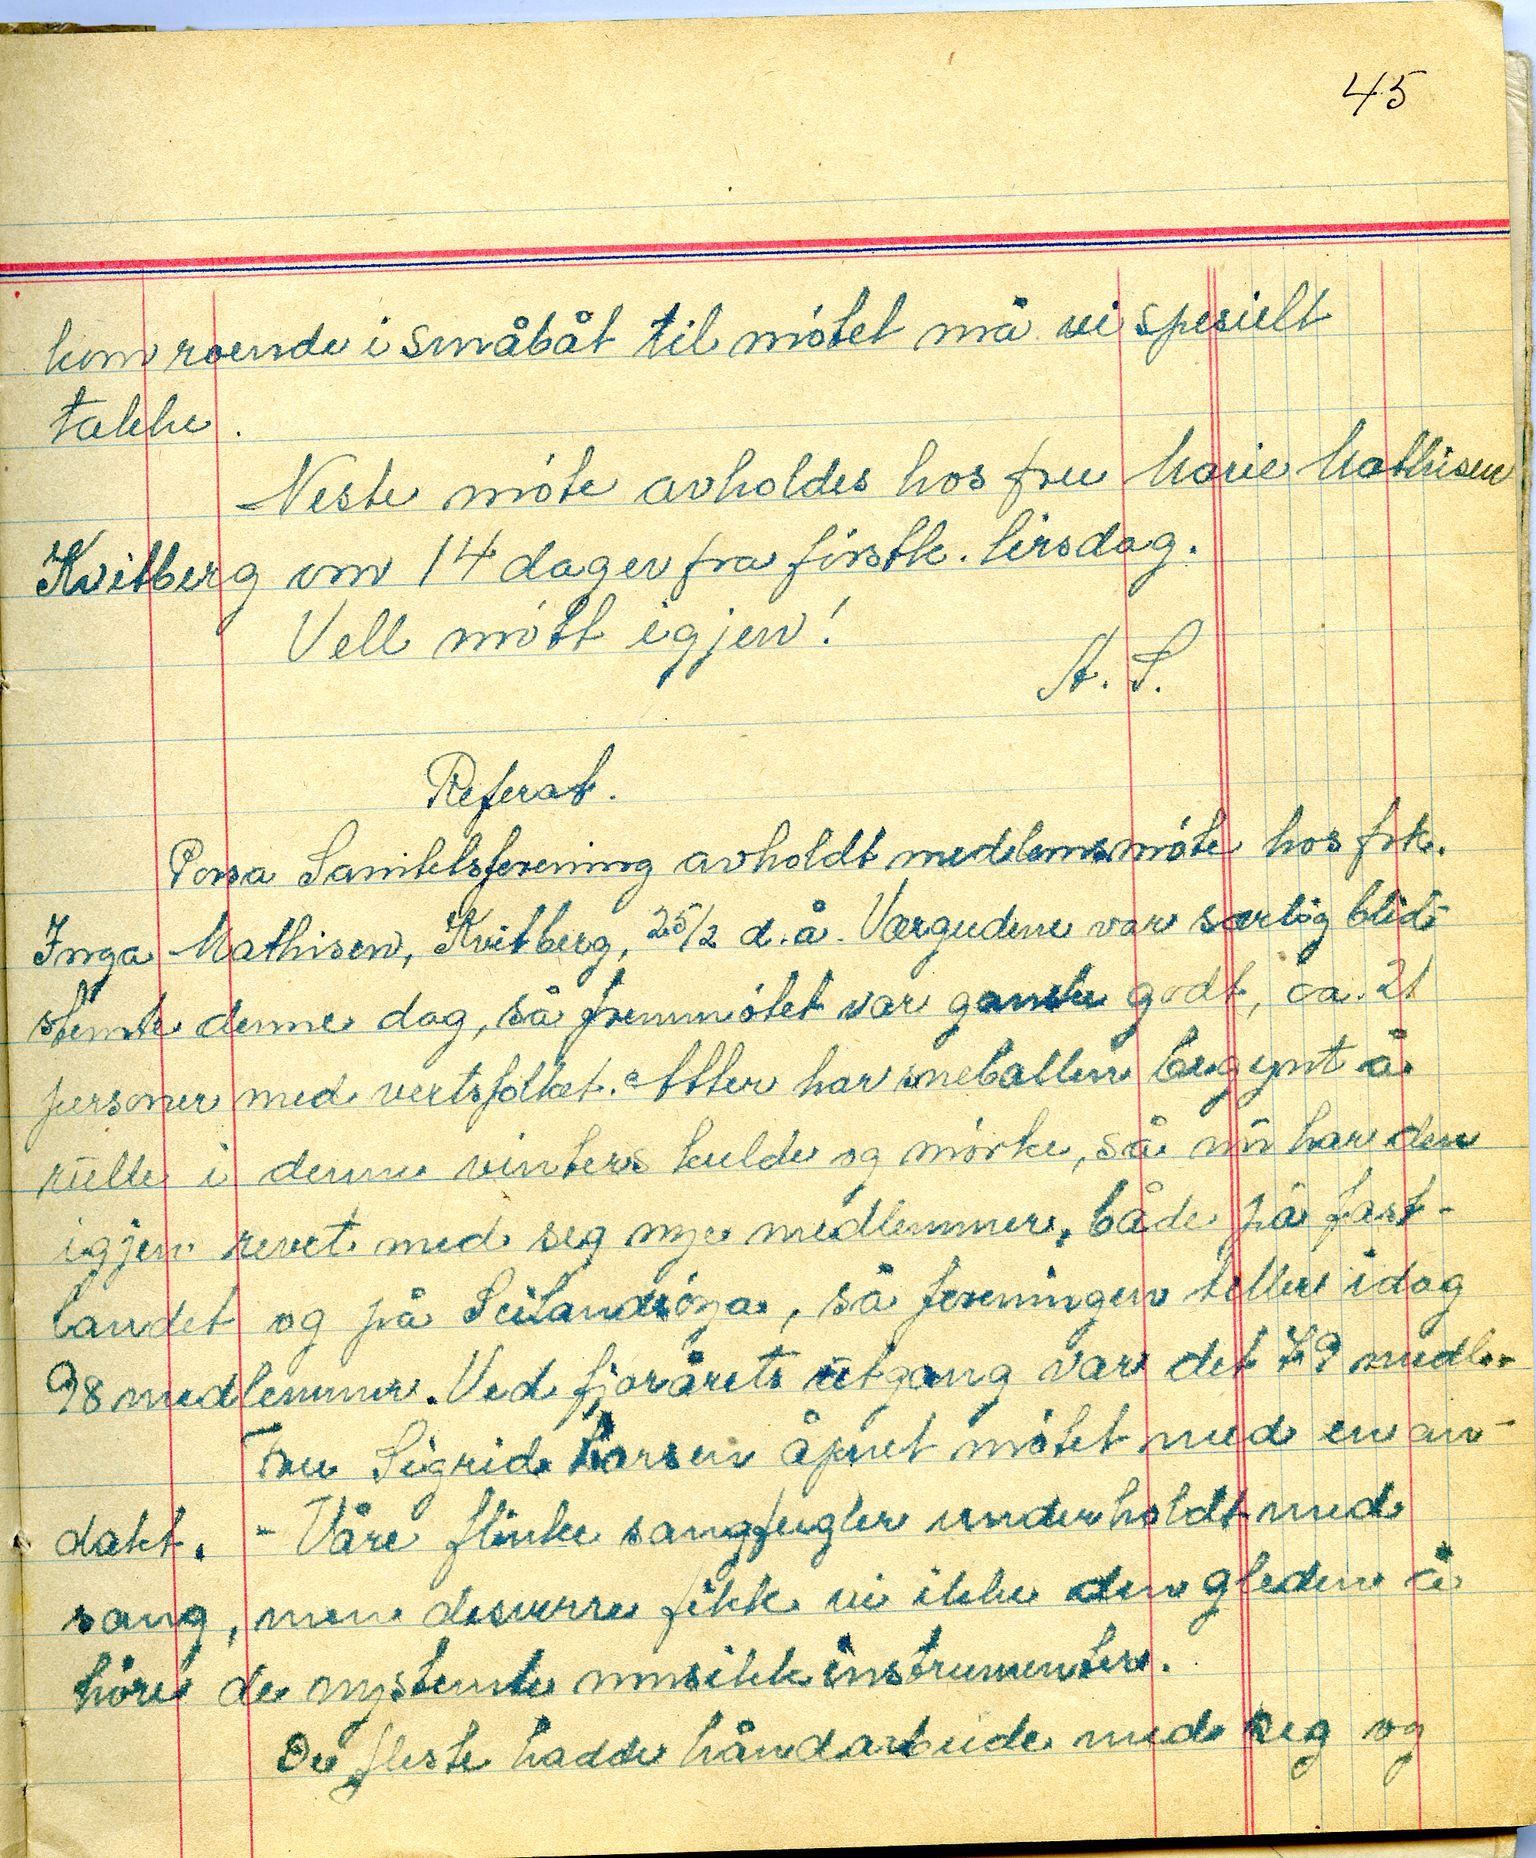 45
kom roende i småbåt til møtet må vi spesielt
takke.
Neste møte avholdes hos fru Marie Mathisen
Kvitberg om 14 dager fra førstk. tirsdag.
Vell møtt igjen!
A. S.
Referat.
Porsa Sanitetsforening avholdt medlemsmøte hos frk.
Inga Mathisen, Kvitberg, 25/2 d.å. Værgudene var særlig blid-
stemte denne dag, så fremmøtet var ganske godt, ca. 21
personer med vertsfolket. Atter har sneballen begynt å
rulle i denne vinters kulde og mørke, så nu har den
igjen revet med seg nye medlemmer, både på fast-
landet og på Seilandsøya, så foreningen teller idag
98 medlemmer. Ved fjorårets utgang var det 79 medl.
Fru Sigrid Larsen åpnet møtet med en an-
dakt. - Våre flinke sangfugler underholdt med
sang, men desverre fikk vi ikke den gleden å
høre de nystemte musikkinstrumenter.
De fleste hadde håndarbeide med seg og